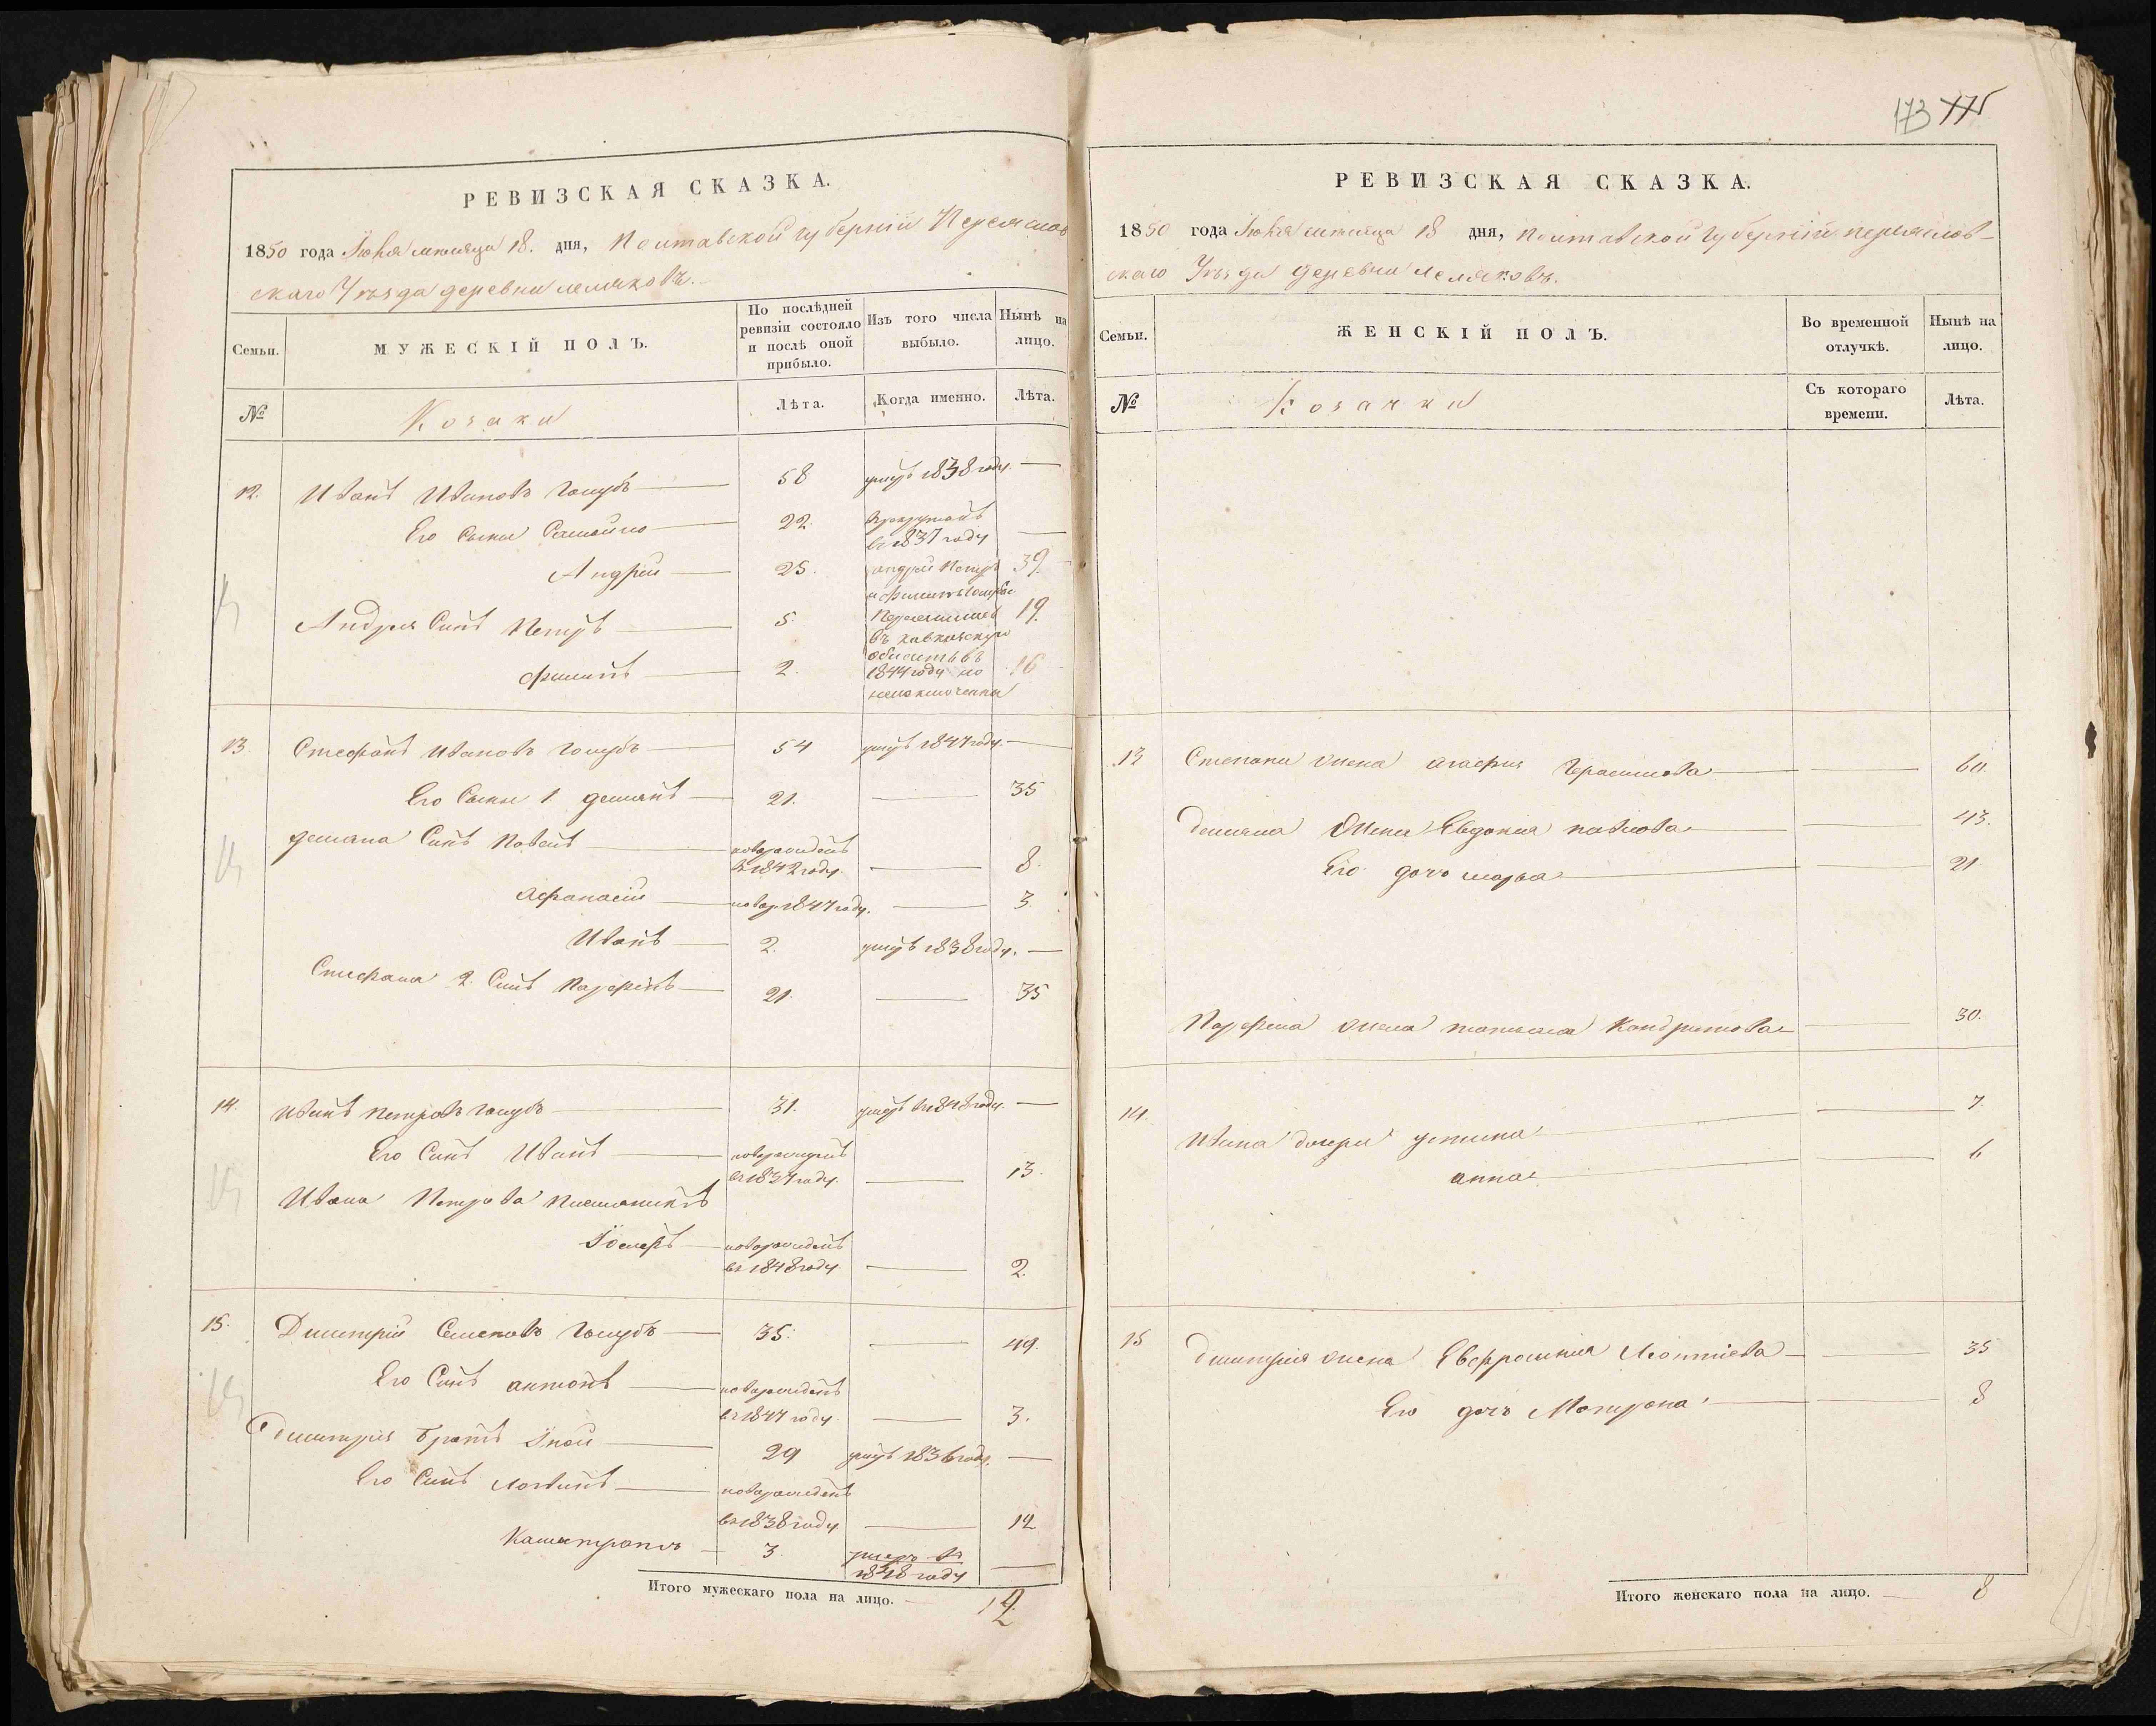 РЕВИЗСКАЯ СКАЗКА.
1850 года Іюня мѣсяца 18. дня, Полтавской губерніи Переяслов
скаго Уѣзда деревни Лемяховъ.
Семьи.
МУЖЕСКІЙ ПОЛЪ.
По послѣдней ревизіи состояло и послѣ оной прибыло.
Изъ того числа выбыло.
Нынѣ на лицо.
№
Козаки
Лѣта.
Когда именно.
Лѣта.
12. Иванъ Ивановъ Голубъ 58 умеръ 1838 году.
Его Сыны Самойло 22.
в 1837 году
Андрей 25. Андрей Петръ 39.
и Филипъ Голубы
Андрея Синъ Петръ 5. Переселились 19.
въ кавказскую
область въ
Филипъ 2. 1844 году но 16
неисключенны
13. Стефанъ Ивановъ Голубъ 54 умеръ 1847 году.
Его Сыны 1 Демянъ 21. 35
Демяна Синъ Павелъ новорожденъ
въ 1842 году. 8.
Афанасій новор. 1847 году. 3.
Иванъ 2. умеръ 1838 году.
Стефана 2. Синъ Парфенъ 21. 35
14. Иванъ Петровъ Голубъ 31. умеръ в 1848 году.
Его Синъ Иванъ новорожденъ
въ 1837 году. 13.
Ивана Петрова Племянникъ
Іосифъ новорожденъ
въ 1848 году. 2.
15. Дмитрій Семеновъ Голубъ 35. 49.
Его Синъ Антонъ новорожденъ
въ 1847 году 3.
Дмитрія Братъ 29 умеръ 1836 году.
Его Синъ Логвинъ новорожденъ
въ 1838 году 12
3. умеръ въ
1838 году
Итого мужескаго пола на лицо. 12
173
РЕВИЗСКАЯ СКАЗКА.
1850 года Іюня мѣсяца 18 дня, Полтавской Губерніи Переяслов-
скаго Уѣзда Деревни Лемяховъ.
Семьи.
ЖЕНСКІЙ ПОЛЪ.
Во временной отлучкѣ.
Нынѣ на лицо.
№
Козачки
Съ котораго времени.
Лѣта.
13 Степана Жена Агафия Герасимова 60.
Демяна Жена Евдокия Павлова 43.
Его дочь Марья 21
Парфена Жена Татьяна Кондратова 30.
14. Ивана дочери Устина 7.
Анна 6
15 Дмитрія жена Евфросиния Леонтіева 35
Его дочь Мотрона 8
Итого женскаго пола на лицо. 8